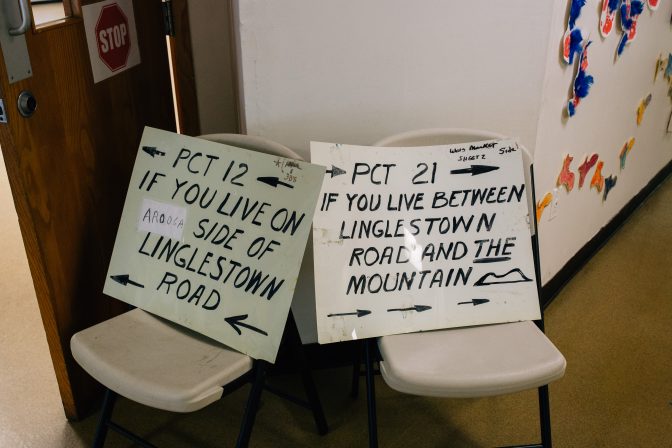 STOP
PCT 12
IF YOU LIVE ON
AROOGA SIDE OF
LINGLESTOWN
ROAD
Weis Market Side
SHEETZ
PCT 21
IF YOU LIVE BETWEEN
LINGLESTOWN
ROAD AND THE
MOUNTAIN